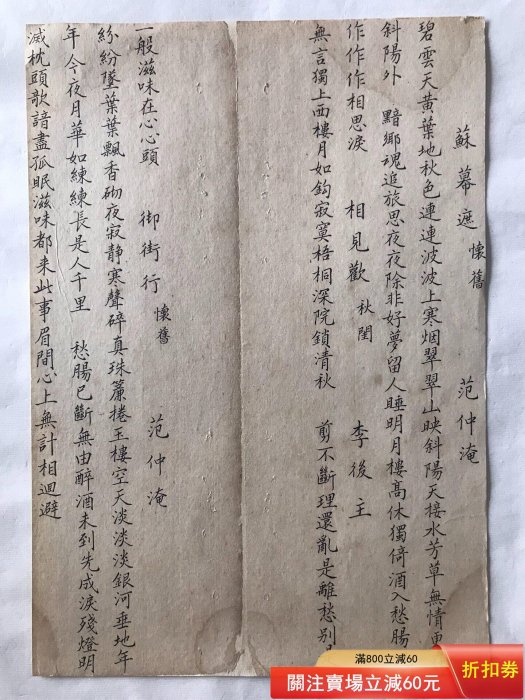 蘇幕遮 懷舊 范仲淹
碧雲天黃葉地秋色連連波波上寒烟翠翠山映斜陽天接水芳草無情
斜陽外 黯鄉魂追旅思夜夜除非好夢留人睡明月樓高休獨倚酒入愁腸
作作作相思淚 相見歡 秋閨 李後主
無言獨上西樓月如鈎寂寞梧桐深院鎖清秋 剪不斷理還亂是離愁別
一般滋味在心心頭 御街行 懷舊 范仲淹
紛紛墜葉葉飄香砌夜寂静寒聲碎真珠簾捲玉樓空天淡淡淡銀河垂地年
年今夜月華如練練長是人千里 愁腸已斷無由醉酒未到先成淚殘燈明
滅枕頭歌諳盡孤眠滋味都来此事眉間心上無計相迴避
滿800立減60
關注賣場立減60元
折扣券